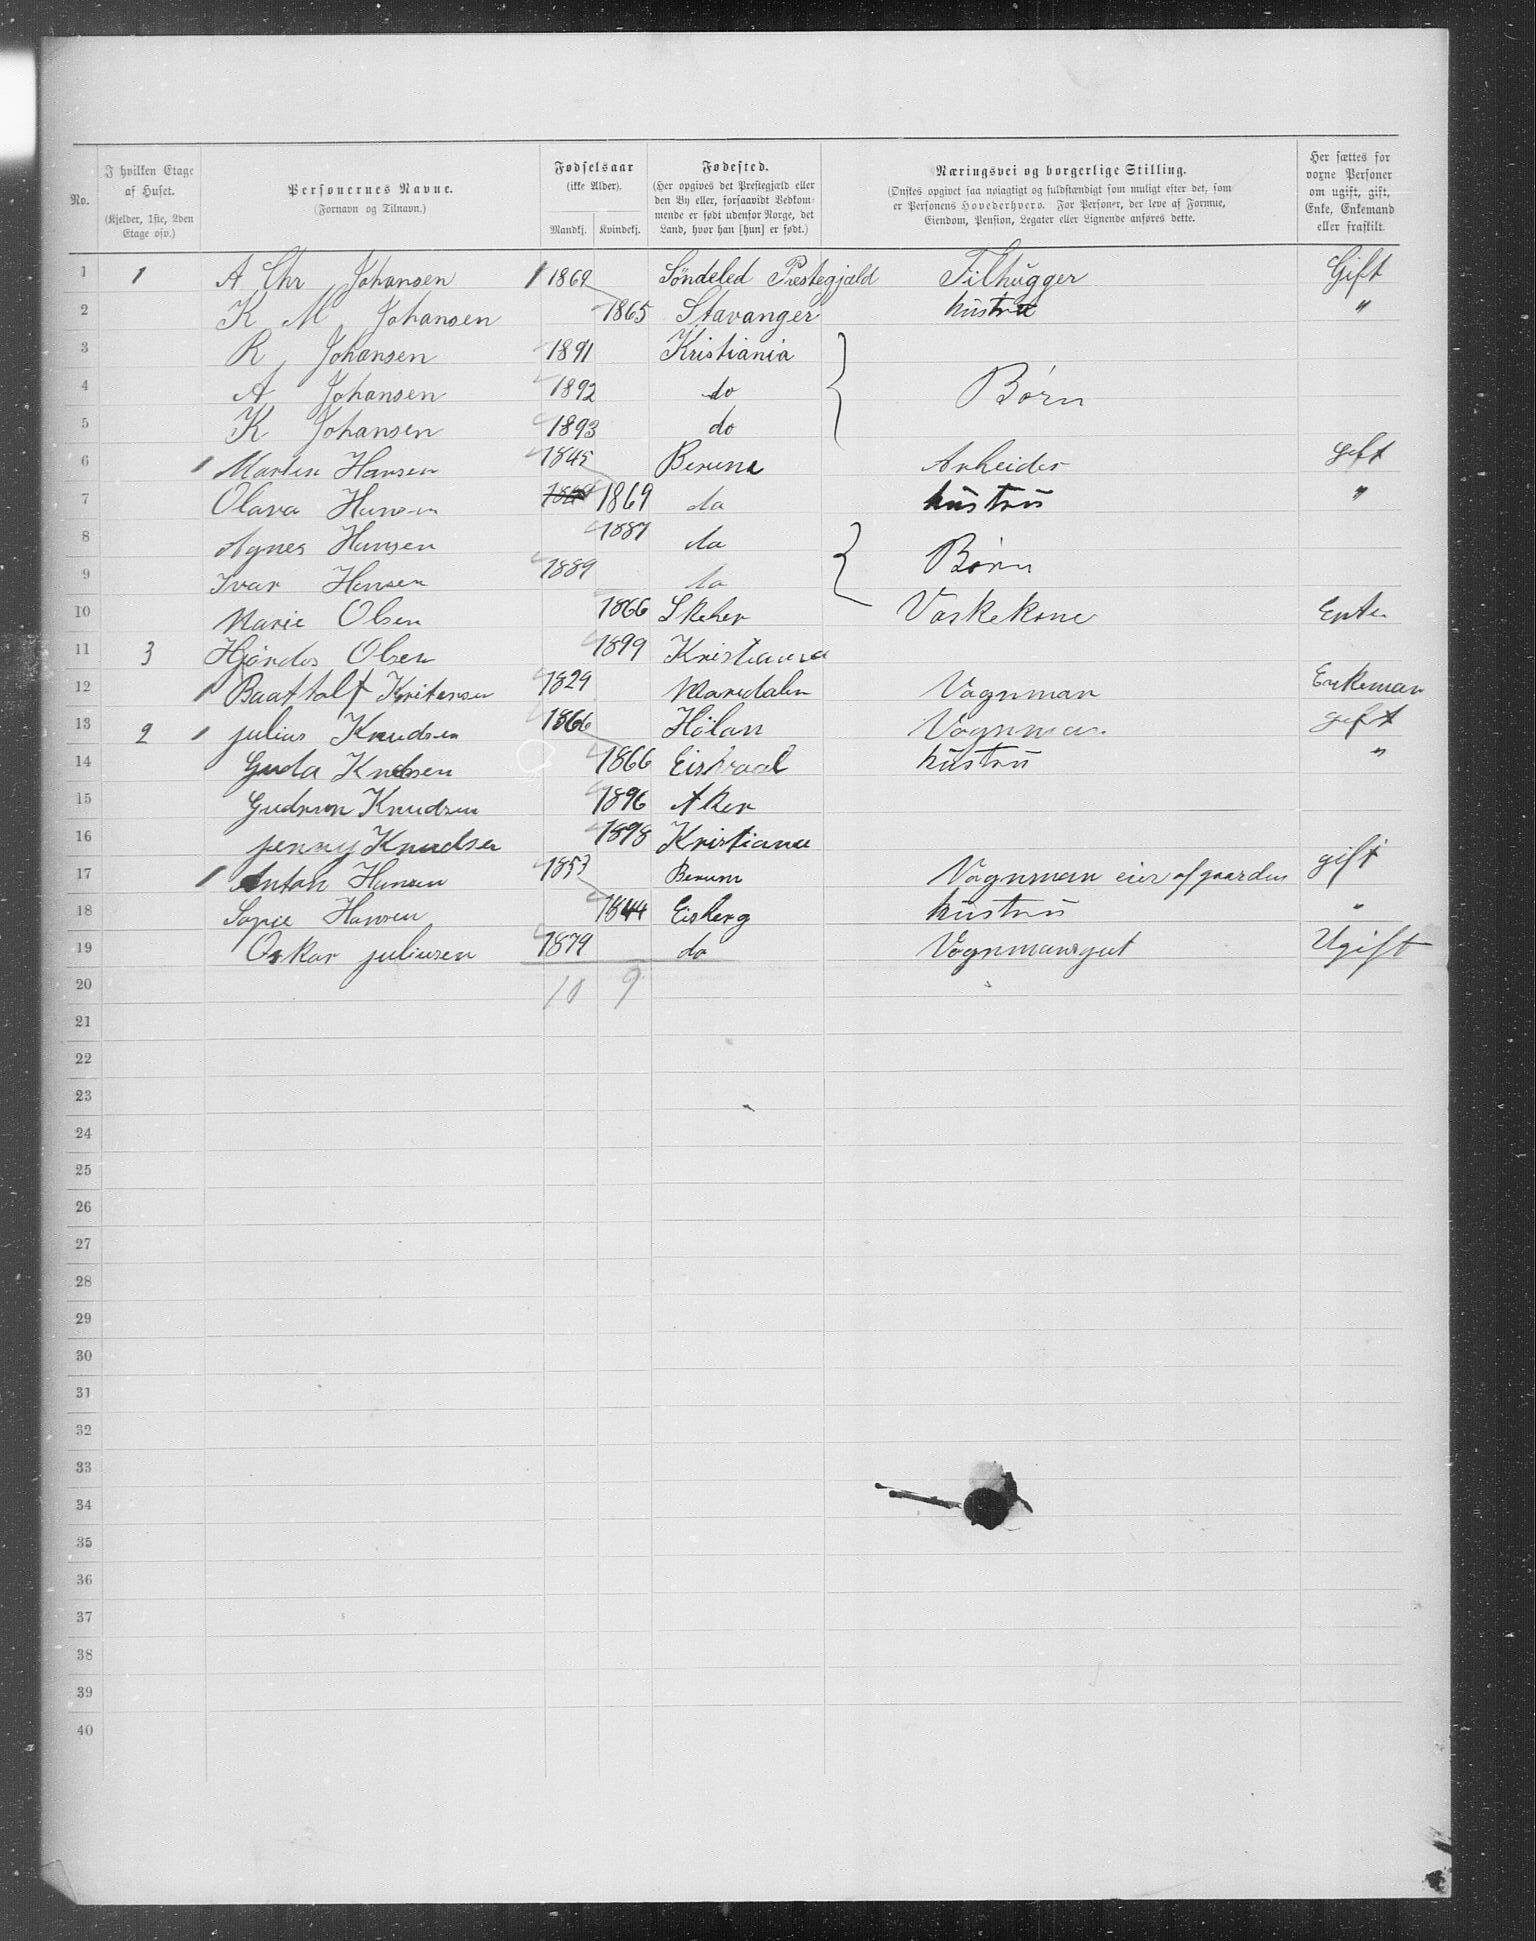 No. I hvilken Etage af Huset. (Kjelder, 1ste, 2den Etage osv.) Personernes Navne. (Fornavn og Tilnavn.) Fødselsaar (ikke Alder). Mandkj. Kvindekj. Fødested. (Her opgives det Prestegjæld eller den By eller, forsaavidt Vedkommende er født udenfor Norge, det Land, hvor han [hun] er født.) Næringsvei og borgerlige Stilling. (Ønskes opgivet saa nøiagtigt og fuldstændigt som muligt efter det, som er Personens Hovederhverv. For Personer, der leve af Formue, Eiendom, Pension, Legater eller Lignende anføres dette. Her sættes for voxne Personer om ugift, gift, Enke, Enkemand eller fraskilt.
1 1 A Chr Johansen 1869 Söndeled Prestegjæld Filhugger Gift
2 K M Johansen 1865 Stavanger hustru "
3 R Johansen 1891 Kristiania
4 A Johansen 1892 do Børn
5 K Johansen 1893 do
6 Martin Hansen 1845 Berum Arbeider gift
7 Olava Hansen 1869 do hustru "
8 Agnes Hansen 1887 do
9 Ivar Hansen 1889 do Børn
10 Marie Olsen 1866 Vaskekone Enke
11 3 Hjördes Olsen 1899 Kristiania
12 1829 Maredalen Vognman Enkeman
13 2 julius Knudsen 1866 Hölan Vognman gift
14 Guda Knudsen 1866 Eisvaal hustru "
15 Gudrun Knudsen 1896 Aker
16 jenny Knudsen 1898 Kristiania
17 Anton Hansen 1853 Berum Vognman eier af gaarden gift
18 Sopie Hansen 1844 Eisberg hustru "
19 Oskar juliusen 1879 do Vognmansgut Ugift
20 10 9
21
22
23
24
25
26
27
28
29
30
31
32
33
34
35
36
37
38
39
40